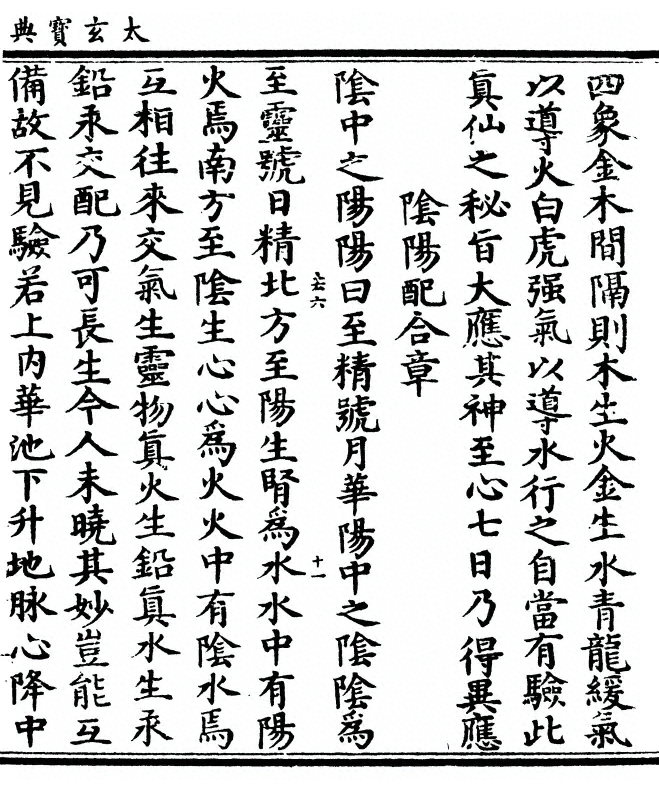 太玄寶典
四象金木間隔則木生火金生水青龍緩氣
以導火白虎强氣以導水行之自當有驗此
眞仙之秘旨大應其神至心七日乃得異應
陰陽配合章
陰中之陽陽曰至精號月華陽中之陰陰爲
六
十一
至靈號日精北方至陽生腎爲水水中有陽
火焉南方至陰生心心爲火火中有陰水焉
互相往來交氣生靈物眞火生鉛眞水生汞
鉛汞交配乃可長生今人未曉其妙豈能互
備故不見驗若上内華池下升地脉心降中